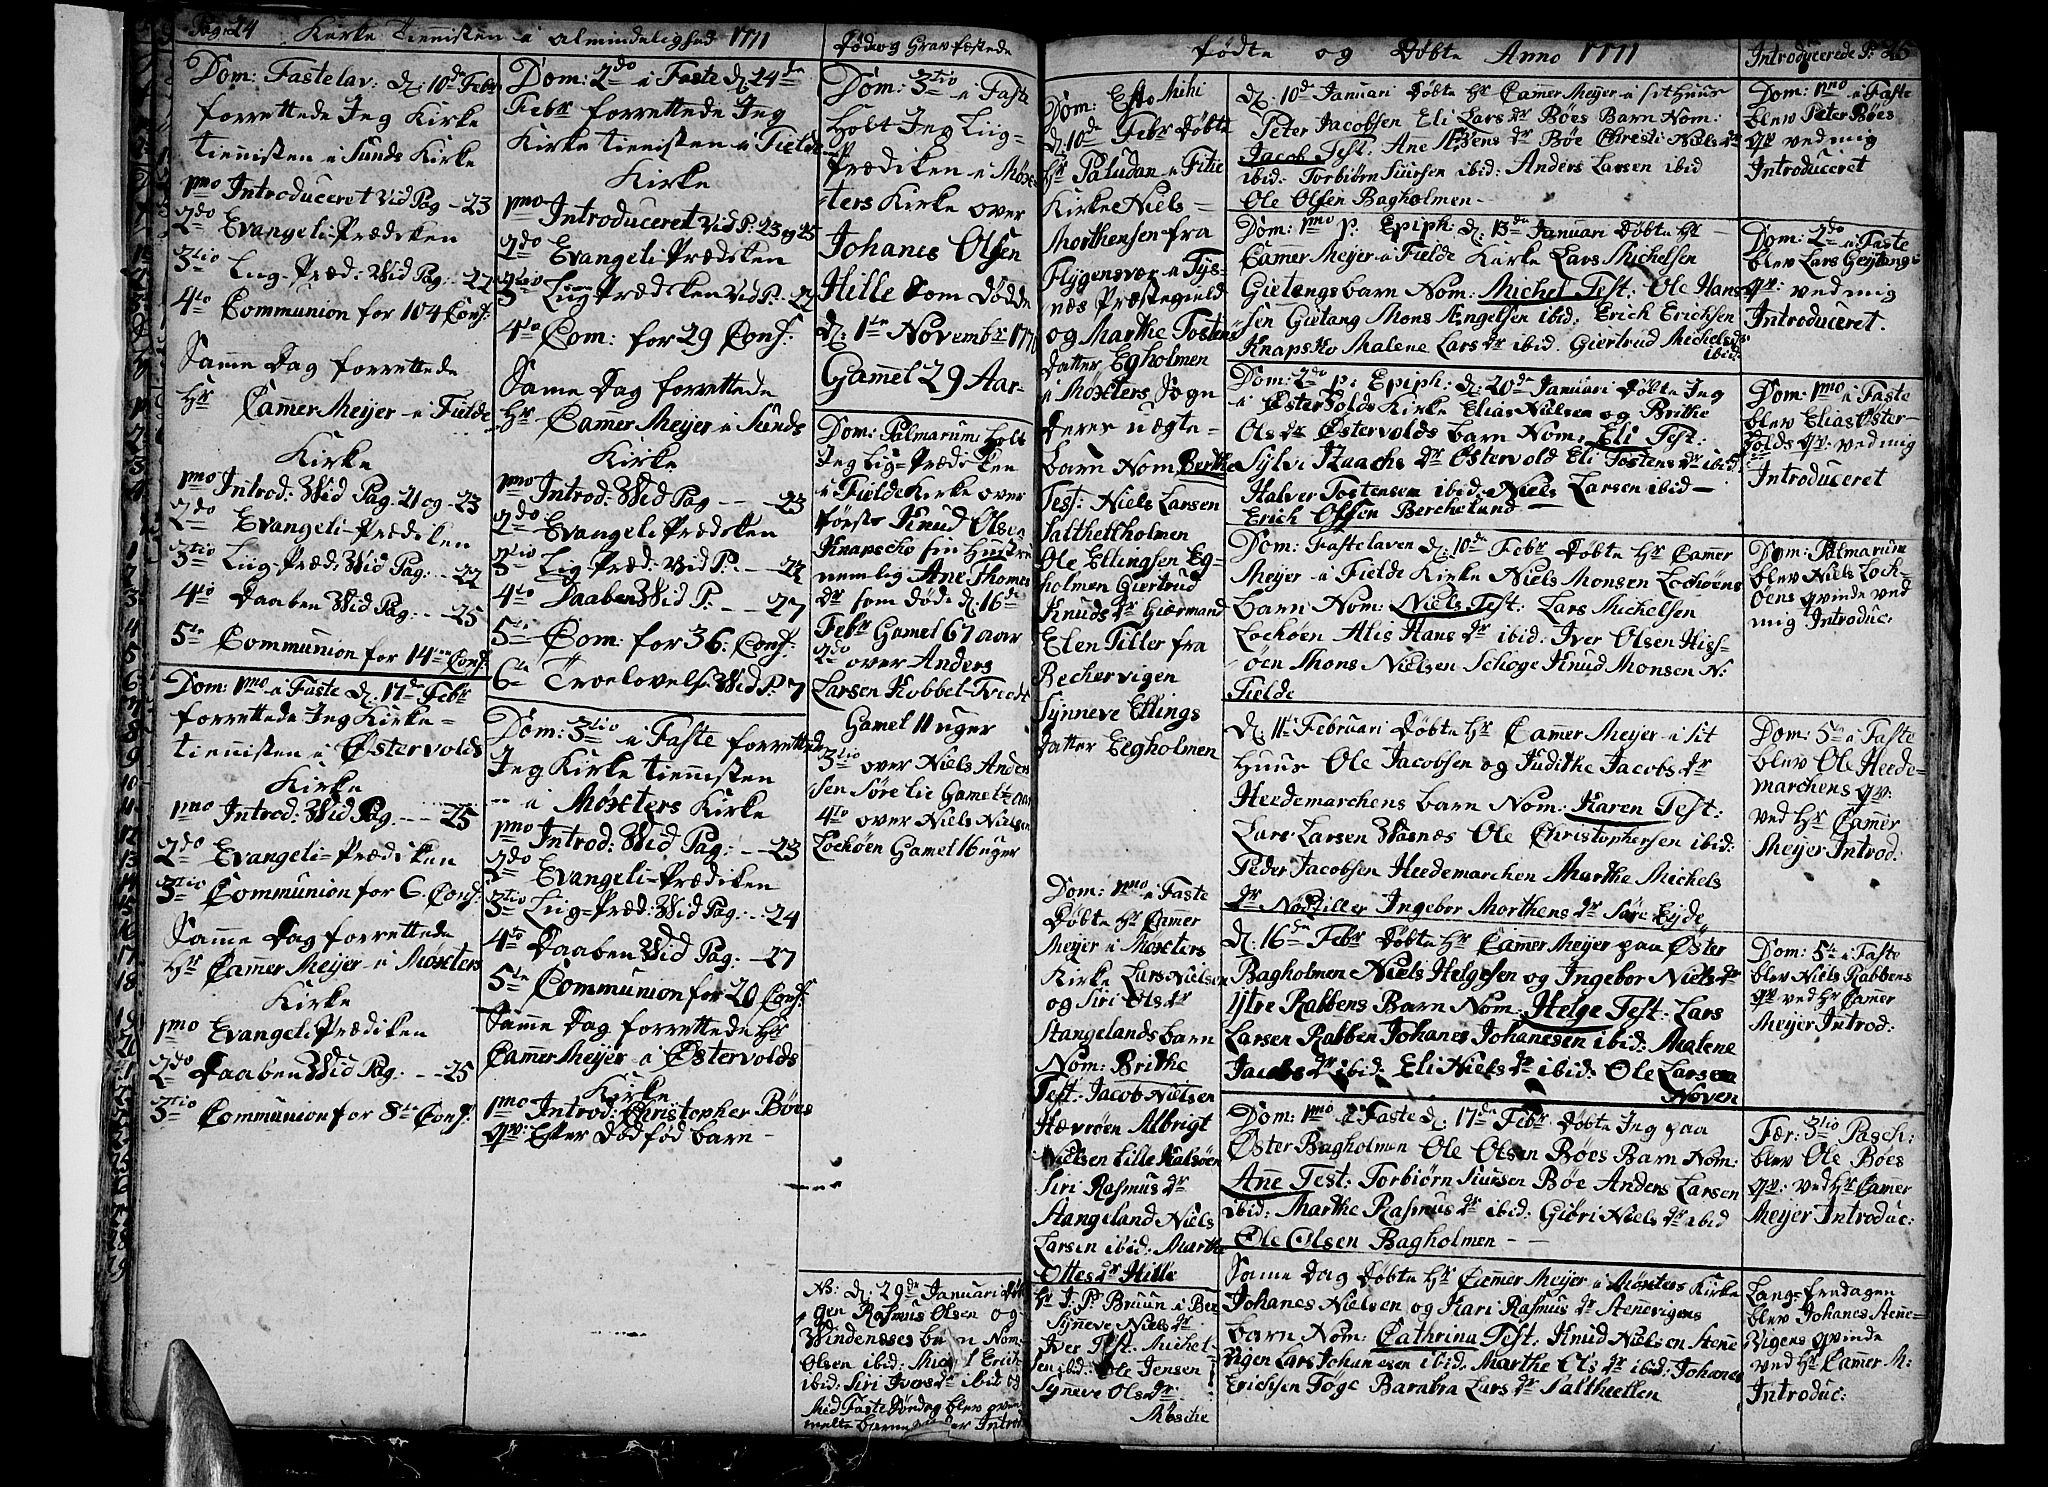 Pag: 24 Kirke Tiennisten i almindelighed 1771
Døde og Grav fæstede
Dom: Fastelav: D: 10de Febr
forrettede Jeg Kirke
tiennisten i Sunds Kirke
1mo Introduceret Vid Pag - 23
2do Evangeli-Prædiken
3tio Liig-Præd: Wid Pag: - 22
4to Communion for 104 Conf:
Samme Dag forrettede
Hr Cammer Meijer i Fielde
Kirke
1mo Introd: Wid Pag - 21 og - 23
2do Evangeli-Prædiken
3tio Liig-Præd: Wid Pag: - - 22
4to Daaben Wid Pag: - - 25
5te Communion for 14 Conf:
Dom: 1mo i Faste D: 17de Febr
forrettede Jeg Kirke-
tiennisten i Østervolds
Kirke
1mo Introd: Wid Pag: - - 25
2do Evangeli-Prædiken
3tio Communion for 6 Conf:
Samme Dag forrettede
Hr Cammer Meijer i Møxters
Kirke
1mo Evangeli Prædiken
2do Daaben Wid Pag: - - 25
3tio Communion for 8te Conf:
Dom: 2do i Faste D: 24de
Febr forrettede Jeg
Kirke tiennisten i Fielde
Kirke
1mo Introduceret Vid P: 23 og 25
2do Evangeli Prædiken
3tio Liig Prædiken Vid P: - 22
4to Com: for 29 Conf:
Same Dag forrettede
Hr Cammer Meijer i Sunds
Kirke
1mo Introd: Wid Pag - - - 23
2do Evangeli Prædiken
3tio Lig Præd: Vid P. - - - 22
4to Daaben Wid P. - - - 27
5te Com: for 36 Conf:
6te Troelovels: Wid P. 7
Dom: 3tio i Faste forrettede
Jeg Kirke tiennisten
i Møxters Kirke
1mo Introd: Wid Pag: - - 23
2do Evangeli-Prædiken
3tio Liig-Præd: Wid Pag: - - 24
4to Daaben Wid Pag: - 27
5te Communion for 20 Conf:
Samme Dag forrettede Hr
Cammer Meijer i Østervolds
Kirke
1mo Introd: Christopher Bøes
qv: Efter Død fød barn -
Dom: 3tio i Faste
Holt Jeg Liig-
Prædiken i Møx-
ters Kirke over
Johanes Olsen
Hille som Dødde
D: 1te Novembr 1770
Gammel 29 Aar-
Dom: Palmarum Holt
Jeg Lig-Prædiken
i Fielde Kirke over
første Knud Olsen
Knapscho sin Hustru
nemlig Ane Thomes
dr som døde D: 16de
Febr Gamel 67 aar
2do over Anders
Larsen Kobbel-Tvedt
Gamel 11 uger
3tio over Niels Anders
sen Søre Lie Gamel aar
4to over Niels Nielsen
Lochøen Gamel 16 uger
NB: D: 29de Januari
gen Rasmus Olsen og
Windeneses barn Nom:
Olsen ibid: Erich
ibid: Siri Ivers dr ibid og
Mid Faste Søndag blev
melte barns er Introd
Fødte og Døbte Anno 1771
Introducerede P: 25
Dom: Esto Mihi
D: 10de Febr Døbte
Hr Paludan i Fitie
Kirke Niels
Morthensen fra
Flygensvær i Tys-
næs Præstegield
og Marthe Tostens
datter Egholmen
i Møxters Sogn
deres uægte-
barn Nom Berthe
Test: Niels Larsen
Salthelholmen
Ole Ellingsen Eg-
holmen Giertrud
Knuds dr Giærmand
Elen Tiller fra
Bechervigen
Synneve Ellings
datter Eegholmen
Dom: 1mo i Faste
Døbte Hr Camer
Meijer i Møxters
Kirke Lars Nielsen
og Siri Ols dr
Stangelands barn
Nom: Brithe
Test: Jacob Nielsen
Hævrøen Albrigt
Nielsen Lille Kalsøen
Siri Rasmus dr
Stangeland Niels
Larsen ibid: Marthe
Ottes dr Hille
Hr J. P. Bruun i Ber
Synneve Niels dr
Iver Test: Michel-
sen ibd: Ole Jensen
Synneve Ols dr:
Møsitie
D: 10de Januari Døbte Hr Camer Meijer i sit Huus
Peter Jacobsen Eli Lars dr Bøes Barn Nom:
Jacob Test: Ane dr Bøe Chresti Niels dr
ibid: Torbiørn Siursen ibid: Anders Larsen ibid
Ole Olsen Bagholmen -
Dom: 1mo p. Epiph: D: 13de Januari Døbte Hr
Cammer Meijer i Fielde Kirke Lars Michelsen
Gietangs barn Nom: Michel Test: Ole Hans
sen Gietang Mons Engelsen ibid: Erich Erichsen
Knapsko Malene Lars dr ibid. Giertrud Michels dr
ibid
Dom: 2do p: Epiph: D: 20de Januari Døbte Jeg
i Østervolds Kirke Elias Nielsen og Brithe
Ols dr Østervolds barn Nom: Eli Test:
Sylvi Haachs dr Østervold Eli Tostens dr ibid
Halver Tostensen ibid: Niels Larsen ibid -
Erich Olsen Berchelund
Dom: Fastelaven D: 10de Febr Døbte Hr Camer
Meijer i Fielde Kirke Niels Monsen Lochøens
barn Nom: Niels Test: Lars Michelsen
Lochøen Alis Hans dr ibid: Iver Olsen His-
øen Mons Nielsen Schoge Knud Monsen N:
Fielde
D: 11te Februari Døbte Hr Cammer Meijer i sit
Huus Ole Jacobsen og Judithe Jacobs dr
Heedemarchens barn Nom: Karen Test:
Lars Larsen Wasnæs Ole Christophersen ibid:
Peder Jacobsen Heedemarchen Marthe Michels
dr Nøstller Ingebor Morthens dr Søre Eyde
D: 16de Febr Døbte Hr Cammer Meijer paa Øster
Bagholmen Niels Helgesen og Ingebor Niels dr
ijtre Rabbens Barn Nom: Helge Test: Lars
Larsen Rabben Johanes Johanesen ibid: Malene
Jacobs dr ibid: Eli Niels dr ibid: Ole Larsen
Hoven
Dom: 1mo i Faste D: 17de Febr Døbte Jeg paa
Øster Bagholmen Ole Olsen Bøes Barn Nom:
Ane Test: Torbiørn Siursen Bøe Anders Larsen
ibid: Marthe Rasmus dr ibid: Giøri Niels dr ibid
Ole Olsen Bagholmen - -
Same Dag Døbte Hr Cammer Meijer i Møxters Kirke
Johanes Nielsen og Kari Rasmus dr Stenevigens
barn Nom: Cathrina Test: Knud Nielsen Stene
vigen Lars Johanesen ibid. Marthe Ols dr ibid: Johanes
Erichsen Føge Barabra Lars dr Salthellen
Dom: 1mo i Faste
blev Peter Bøes
qv ved mig
Introduceret
Dom: 2do i Faste
blev Lars Geijtangs
qv: ved mig
Introduceret.
Dom: 1mo i Faste
blev Elias Øster-
volds qv: ved mig
Introduceret
Dom: Palmarum
blev Niels Loch-
øens qvinde ved
mig Introduc:
Dom: 5te i Faste
blev Ole Heede-
marchens qv:
ved Hr Camer
Meijer Introd:
Dom: 5te i Faste
blev Niels Rabbens
qv ved Hr Camer
Meijer Introd:
Fær: 3tio Pasch:
blev Ole Bøes
qv: ved Hr Camer
Meijer Introduc:
Lang-fredagen
blev Johanes Stene-
vigens qvinde
ved Hr Camer M:
Introduc: